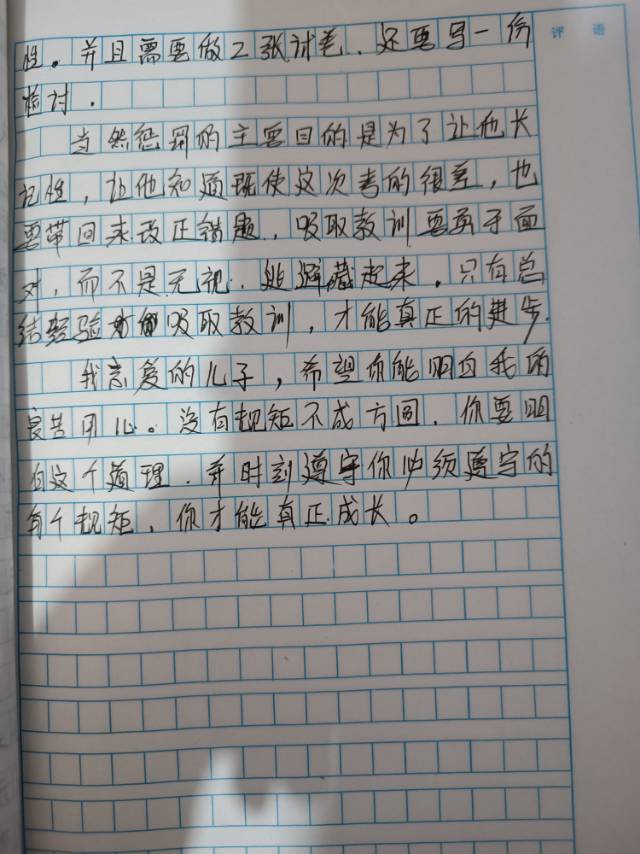 评语
性。并且需要做2张试卷.还要写一份
检讨.
当然惩罚的主要目的是为了让他长
记性,让他知道既使这次考的很差,也
要带回来改正错题.吸取教训要勇于面
对,而不是无视.逃避藏起来.只有总
结经验才吸取教训,才能真正的进步.
我亲爱的儿子,希望你能明白我的
良苦用心。没有规矩不成方圆.你要明
白这个道理.并时刻遵守你必须遵守的
每个规矩,你才能真正成长。